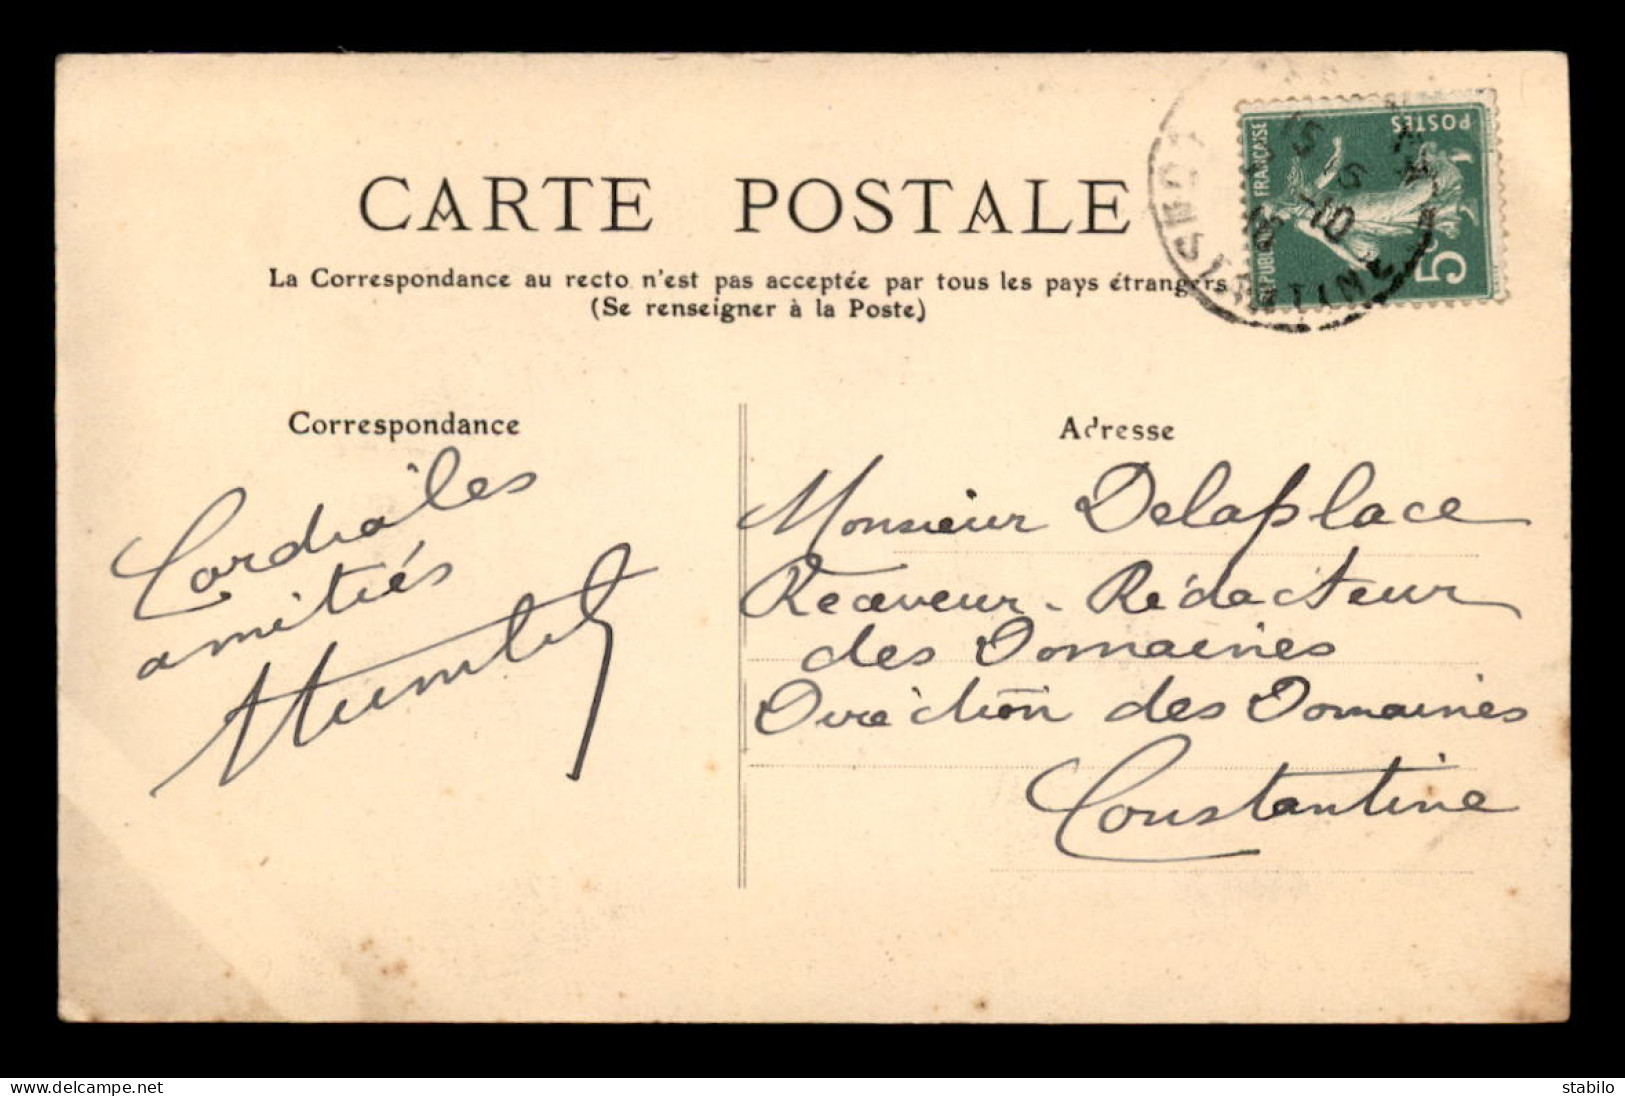 CARTE POSTALE
La Correspondance au recto n'est pas acceptée par tous les pays étrangers
(Se renseigner à la Poste)
REPUBLIQUE FRANÇAISE
POSTES
5c
CONSTANTINE
Correspondance
Cordiales
amitiés
Adresse
Monsieur Delaplace
Receveur-Rédacteur
des Domaines
Direction des Domaines
Constantine
www.delcampe.net
stabilo